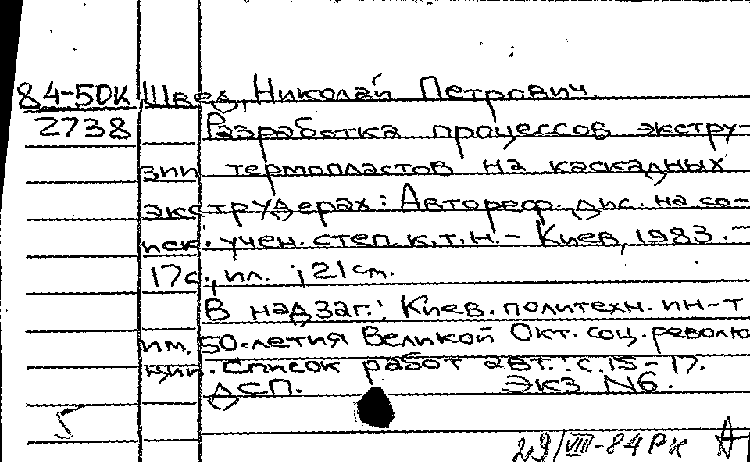 84-50К Швед, Николай Петрович.
2738 Разработка процессов экстру-
зии термопластов на каскадных
экструдерах: Автореф. дис. на со-
иск. учен. степ. к.т.н. - Киев, 1983. -
17с., ил. ; 21 см.
В надзаг.: Киев. политехн. ин-т
им. 50-летия Великой Окт. соц. револю
ции. Список работ авт.: с. 15-17.
ДСП. Экз N6.
29/VIII-84 РК